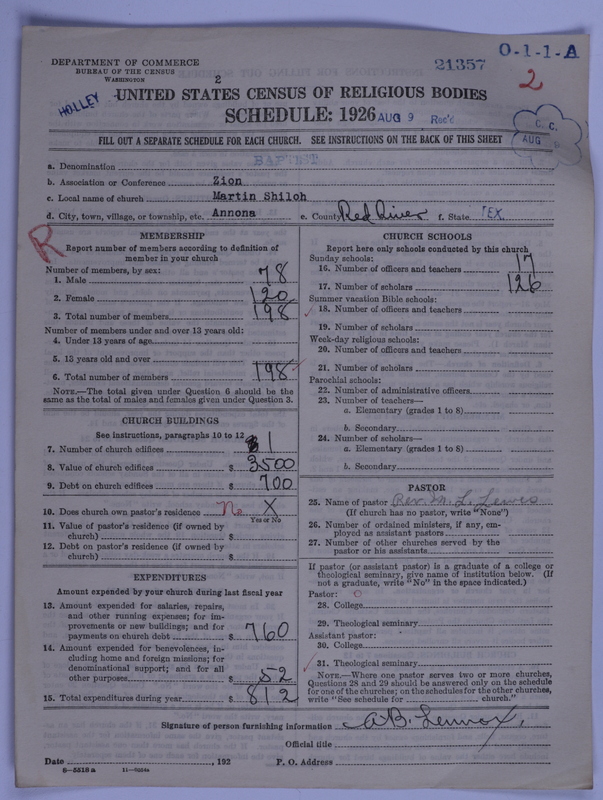 DEPARTMENT OF COMMERCE
BUREAU OF THE CENSUS
WASHINGTON
21357
O-1-1-A
2
2
HOLLEY
UNITED STATES CENSUS OF RELIGIOUS BODIES
SCHEDULE: 1926 AUG 9 Rec'd
C. C.
AUG
FILL OUT A SEPARATE SCHEDULE FOR EACH CHURCH. SEE INSTRUCTIONS ON THE BACK OF THIS SHEET
a. Denomination BAPTIST
b. Association or Conference Zion
c. Local name of church Martin Shiloh
d. City, town, village, or township, etc. Annona e. County Red River f. State TEX
R
MEMBERSHIP
Report number of members according to definition of
member in your church
Number of members, by sex:
1. Male 78
2. Female 120
3. Total number of members 198
Number of members under and over 13 years old:
4. Under 13 years of age
5. 13 years old and over
6. Total number of members 198
NOTE.—The total given under Question 6 should be the
same as the total of males and females given under Question 3.
CHURCH BUILDINGS
See instructions, paragraphs 10 to 12
7. Number of church edifices 1
8. Value of church edifices $ 3500
9. Debt on church edifices $ 700
10. Does church own pastor's residence No X
Yes or No
11. Value of pastor's residence (if owned by
church) $
12. Debt on pastor's residence (if owned by
church) $
EXPENDITURES
Amount expended by your church during last fiscal year
13. Amount expended for salaries, repairs,
and other running expenses; for im-
provements or new buildings; and for
payments on church debt $ 760
14. Amount expended for benevolences, in-
cluding home and foreign missions; for
denominational support; and for all
other purposes $ 52
15. Total expenditures during year $ 812
CHURCH SCHOOLS
Report here only schools conducted by this church
Sunday schools:
16. Number of officers and teachers 17
17. Number of scholars 126
Summer vacation Bible schools:
18. Number of officers and teachers
19. Number of scholars
Week-day religious schools:
20. Number of officers and teachers
21. Number of scholars
Parochial schools:
22. Number of administrative officers
23. Number of teachers—
a. Elementary (grades 1 to 8)
b. Secondary
24. Number of scholars—
a. Elementary (grades 1 to 8)
b. Secondary
PASTOR
25. Name of pastor Rev. M. L. Lewis
(If church has no pastor, write "None")
26. Number of ordained ministers, if any, em-
ployed as assistant pastors
27. Number of other churches served by the
pastor or his assistants
If pastor (or assistant pastor) is a graduate of a college or
theological seminary, give name of institution below. (If
not a graduate, write "No" in the space indicated.)
Pastor:
28. College
29. Theological seminary
Assistant pastor:
30. College
31. Theological seminary
NOTE.—Where one pastor serves two or more churches,
Questions 28 and 29 should be answered only on the schedule
for one of the churches; on the schedules for the other churches,
write "See schedule for church."
Signature of person furnishing information A B. Lennox,
Official title
Date , 192 P. O. Address
6—5518 a